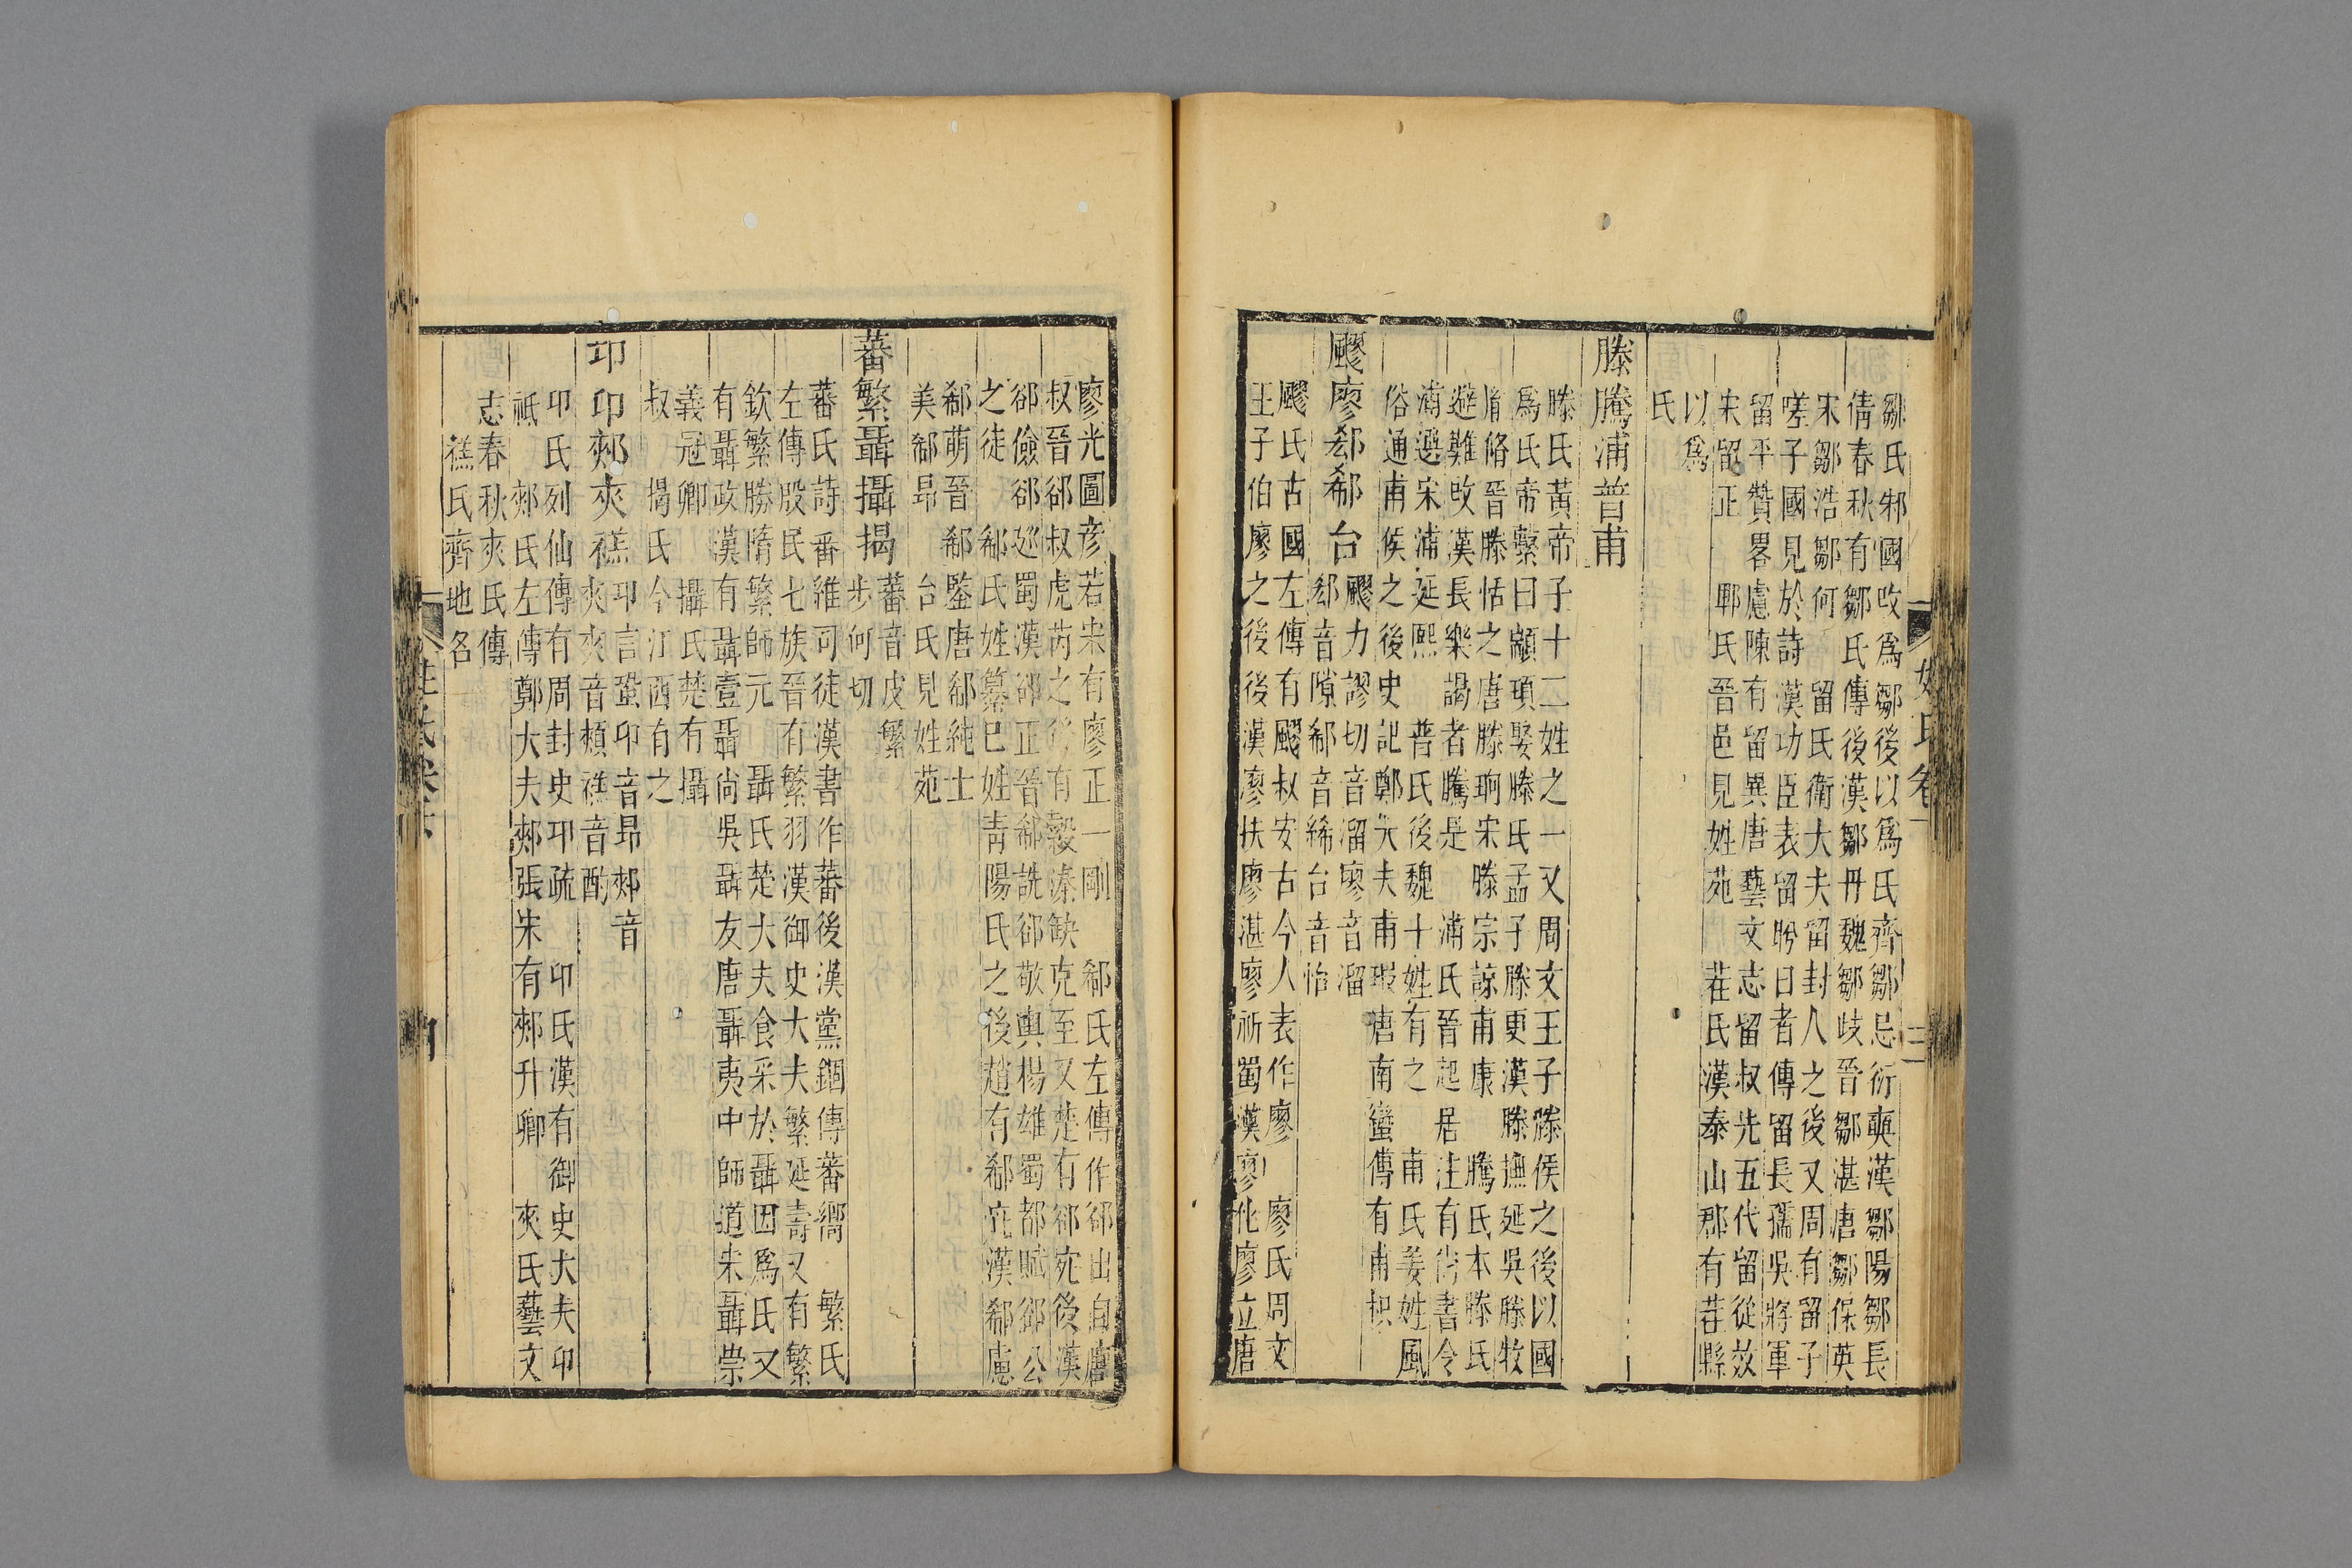 鄒氏邾國改爲鄒後以爲氏齊鄒忌衍奭漢鄒陽鄒長
倩春秋有鄒氏傳後漢鄒丹魏鄒岐晉鄒湛唐鄒保英
宋鄒浩鄒何 留氏衛大夫留封人之後又周有留子
嗟子國見於詩漢功臣表留肹日者傳留長孺吳將軍
留平贊畧慮陳有留異唐藝文志留叔先五代留從效
宋留正 鄆氏晉邑見姓苑 茬氏漢泰山郡有茬縣
以爲
氏
滕騰浦普甫
滕氏黃帝子十二姓之一又周文王子滕侯之後以國
爲氏帝繫曰顓頊娶滕氏孟子滕更漢滕撫延吳滕牧
脩脩晉滕恬之唐滕珦宋滕宗諒甫康 騰氏本滕氏
避難改漢長樂謁者騰是 浦氏晉起居注有尚書令
浦選宋浦延熙 普氏後魏十姓有之 甫氏姜姓風
俗通甫侯之後史記鄭大夫甫瑕唐南蠻傳有甫枳
飂廖郄郗台
飂力謬切音溜廖音溜
郄音隙郗音絺台音怡
飂氏古國左傳有飂叔安古今人表作廖 廖氏周文
王子伯廖之後後漢廖扶廖湛廖祈蜀漢廖化廖立唐
廖光圖彥若宋有廖正一剛 郄氏左傳作郤出自唐
叔晉郤叔虎芮之後有縠溱缺克至又楚有郤宛後漢
郤儉郤巡蜀漢郤正晉郄詵郤敬輿楊雄蜀都賦郤公
之徒 郗氏姓纂巳姓青陽氏之後趙有郗疵漢郗慮
郗萌晉郗鑒唐郗純士
美郗昂 台氏見姓苑
蕃繁聶攝揭
蕃音皮繁
步何切
蕃氏詩番維司徒漢書作蕃後漢黨錮傳蕃嚮 繁氏
左傳殷民七族晉有繁羽漢御史大夫繁延壽又有繁
欽繁勝隋繁師元 聶氏楚大夫食采於聶因爲氏又
有聶政漢有聶壹聶尙吳聶友唐聶夷中師道宋聶崇
義冠卿 攝氏楚有攝
叔 揭氏今江西有之
卭卬郟夾䄮
卭言蛩卬音昂郟音
夾夾音頰䄮音酌
卭氏列仙傳有周封史卭疏 卬氏漢有御史大夫卬
祗 郟氏左傳鄭大夫郟張宋有郟升卿 夾氏藝文
志春秋夾氏傳
䄮氏齊地名